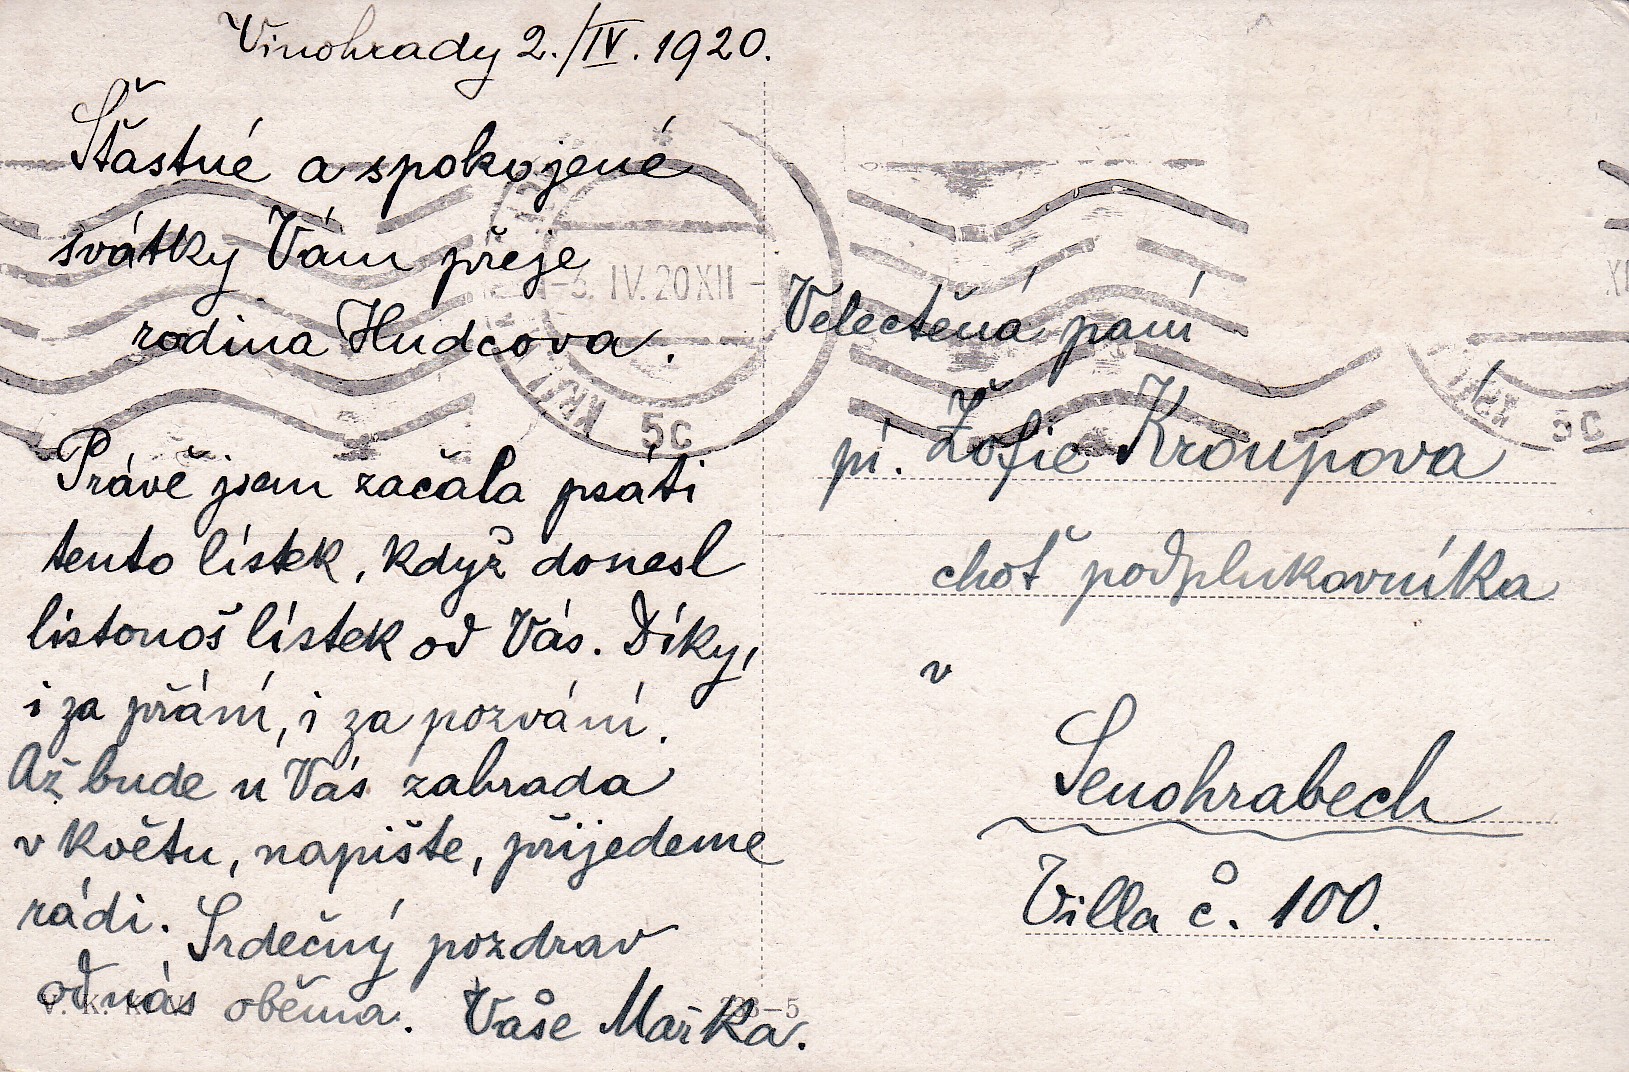 Vinohrady 2./IV. 1920.
Šťastné a spokojené
svátky Vám přeje
rodina Hudcova.
Právě jsem začala psáti
tento lístek, když donesl
listonoš lístek od Vás. Díky,
i za přání, i za pozvání.
Až bude u Vás zahrada
v květu, napište, přijedeme
rádi. Srdečný pozdrav
od nás oběma. Vaše Mařka.
Velectěná paní
pí. Žofie Kroupova
choť podplukovníka
v
Senohrabech
Villa č. 100.
-3. IV. 20 XII -
5c